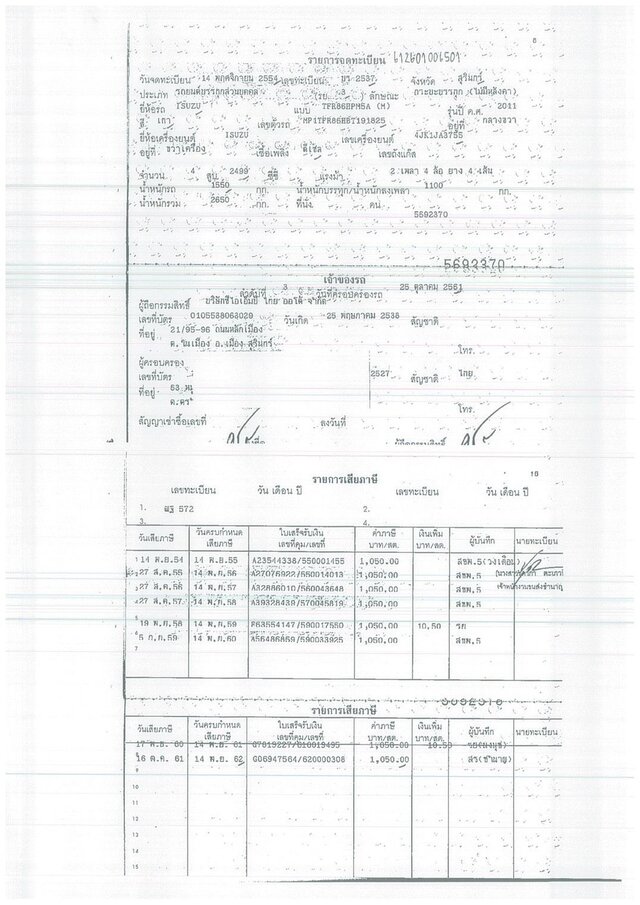 8
รายการจดทะเบียน 612401001501
วันจดทะเบียน 14 พฤศจิกายน 2554 เลขทะเบียน บร 2537 จังหวัด สุรินทร์
ประเภท รถยนต์บรรทุกส่วนบุคคล (รย. 3 ) ลักษณะ กระบะบรรทุก (ไม่มีหลังคา)
ยี่ห้อรถ ISUZU แบบ TFR86HPM5A (M) รุ่นปี ค.ศ. 2011
สี เทา เลขตัวรถ อยู่ที่ กลางขวา
ยี่ห้อเครื่องยนต์ ISUZU เลขเครื่องยนต์ 4JK1JA3755
อยู่ที่ ขวาเครื่อง เชื้อเพลิง ดีเซล เลขถังแก๊ส
จำนวน 4 สูบ 2499 ซีซี แรงม้า 2 เพลา 4 ล้อ ยาง 4 เส้น
น้ำหนักรถ 1550 กก. น้ำหนักบรรทุก/น้ำหนักลงเพลา 1100 กก.
น้ำหนักรวม 2650 กก. ที่นั่ง คน
5692370
5692370
เจ้าของรถ
ลำดับที่ 3 วันที่ครอบครองรถ 25 ตุลาคม 2561
ผู้ถือกรรมสิทธิ์
เลขที่บัตร 0105538063029 วันเกิด 25 พฤษภาคม 2538 สัญชาติ
ที่อยู่ 21/95-96 ถนนหลักเมือง
ต.ในเมือง อ.เมือง สุรินทร์
โทร.
ผู้ครอบครอง
เลขที่บัตร 2527 สัญชาติ ไทย
ที่อยู่ 63
โทร.
สัญญาเช่าซื้อเลขที่ ลงวันที่
18
รายการเสียภาษี
เลขทะเบียน วัน เดือน ปี เลขทะเบียน วัน เดือน ปี
1. 572 2.
3. 4.
วันเสียภาษี วันครบกำหนดเสียภาษี ใบเสร็จรับเงิน เลขที่คุม/เลขที่ ค่าภาษี บาท/สต. เงินเพิ่ม บาท/สต. ผู้บันทึก นายทะเบียน
1 14 พ.ย.54 14 พ.ย.55 A23544338/550001455 1,050.00 สขพ.5
2 27 ส.ค.55 14 พ.ย.56 A27076922/550014013 1,050.00 สขพ.5
3 27 ส.ค.56 14 พ.ย.57 A32866010/560043648 1,050.00 สขพ.5
4 27 ส.ค.57 14 พ.ย.58 A39328439/570045819 1,050.00 สขพ.5
19 พ.ย.58 14 พ.ย.59 1,050.00 10.50 รย
5 ก.ย.59 14 พ.ย.60 A56486869/590033925 1,050.00 สขพ.5
7
รายการเสียภาษี
วันเสียภาษี วันครบกำหนดเสียภาษี ใบเสร็จรับเงิน เลขที่คุม/เลขที่ ค่าภาษี บาท/สต. เงินเพิ่ม บาท/สต. ผู้บันทึก นายทะเบียน
17 พ.ย. 60 14 พ.ย. 61 1,050.00 10.50
16 ต.ค. 61 14 พ.ย. 62 G06947564/620000308 1,050.00
9
10
11
12
13
14
15